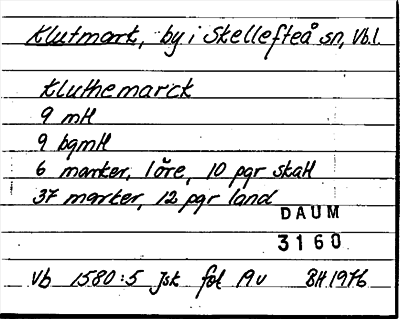 Klutmark, by i Skellefteå sn, Vb.l.
Kluthemarck
9 mtl
9 bgmtl
6 marker, 1 öre, 10 pgr skatt
37 marker, 12 pgr land
DAUM
3160
Vb 1580:5 Jsk fol 19v BH 1976